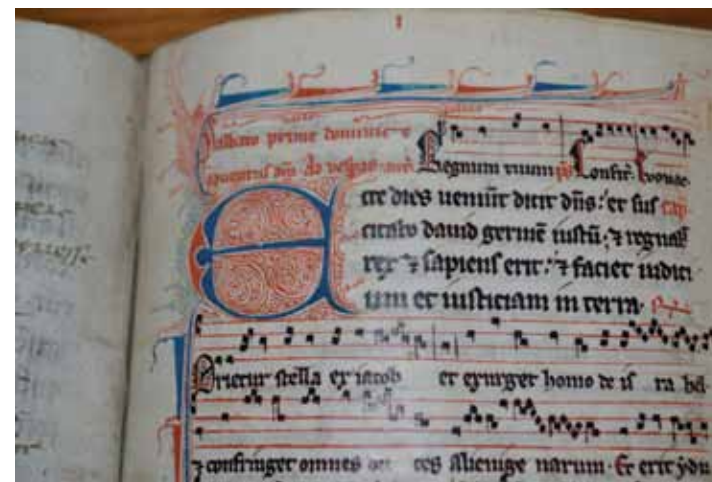 I
Sabbato prime dominice
aduentus dñi. Ad vesp̄as. an̄.
Regnum tuum p̄s Confit̄. Evouae
Ecce dies ueniūt dicit dñs: et sus cap̄
citabo dauid germē iustū: ⁊ regnab
rex ⁊ sapiens erit: ⁊ faciet iudici
um et iusticiam in terra.
Orietur stella ex iacob et exurget homo de is ra hel
⁊ confringet omnes alienige narum. Et erit ydu